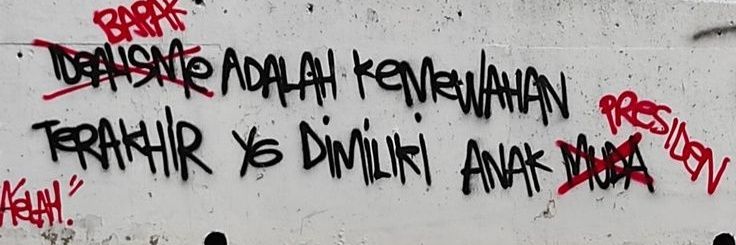 BAPAK
IDEALISME ADALAH KEMEWAHAN
PRESIDEN
TERAKHIR YG DIMILIKI ANAK MUDA
A'ELAH.."